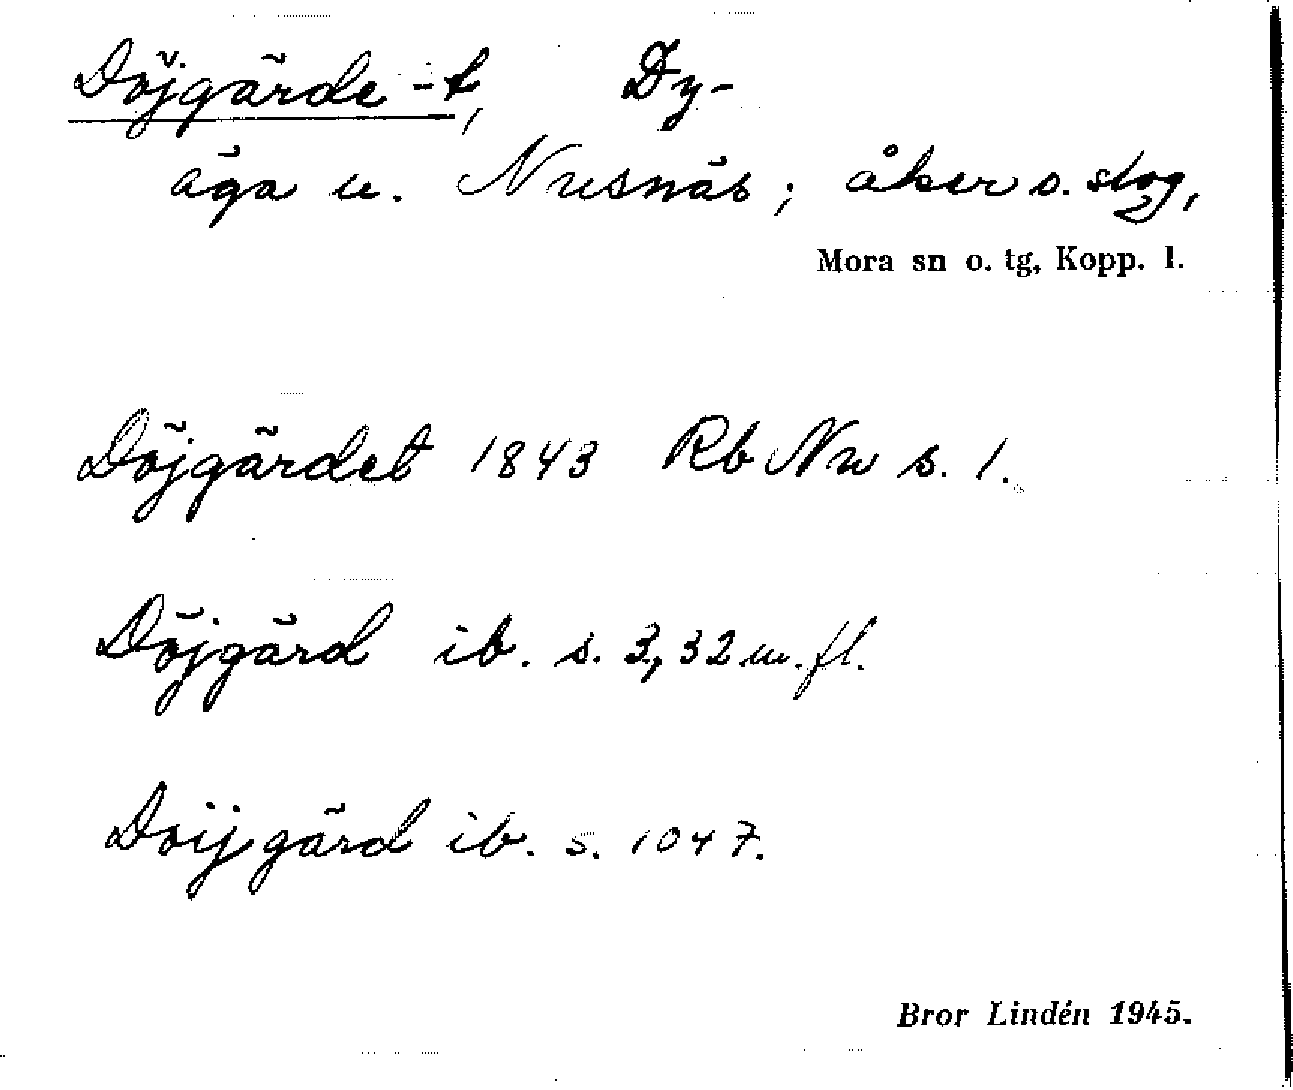 Döjgärde -t, Dy-
äga u. Nusnäs; åker o. slog,
Mora sn o. tg, Kopp. l.
Döjgärdet 1843 Rb Nu s. 1.
Döjgärd ib. s. 3, 32 m. fl.
Doijgärd ib. s. 1047.
Bror Lindén 1945.